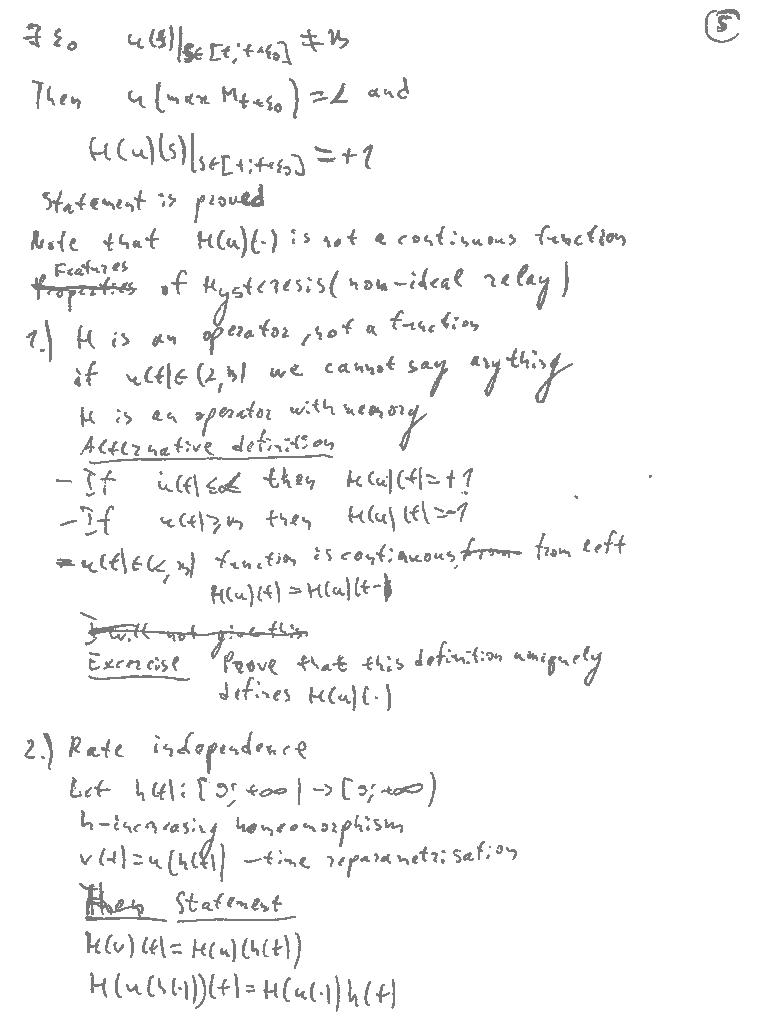 5
∃ ε₀ u(s)|s∈[t; t+ε₀] ≠ β
Then u(max M t+ε₀) = α and
H(u)(s)|s∈[t; t+ε₀] = +1
Statement is proved
Note that H(u)(·) is not a continuous function
Features
Properties of Hysteresis (non-ideal relay)
1.) H is an operator, not a function
if u(t) ∈ (α, β) we cannot say anything
H is an operator with memory
Alternative definition
- If u(t) ≤ α then H(u)(t) = +1
- If u(t) ≥ β then H(u)(t) = -1
- u(t) ∈ (α, β) function is continuous, from from left
H(u)(t) = H(u)(t-)
I will not give this
Excercise Prove that this definition uniquely
defines H(u)(·)
2.) Rate independence
Let h(t): [0; +∞) → [0; +∞)
h - increasing homeomorphism
v(t) = u(h(t)) - time reparametrisation
Then Statement
H(v)(t) = H(u)(h(t))
H(u(h(·)))(t) = H(u(·)) h(t)